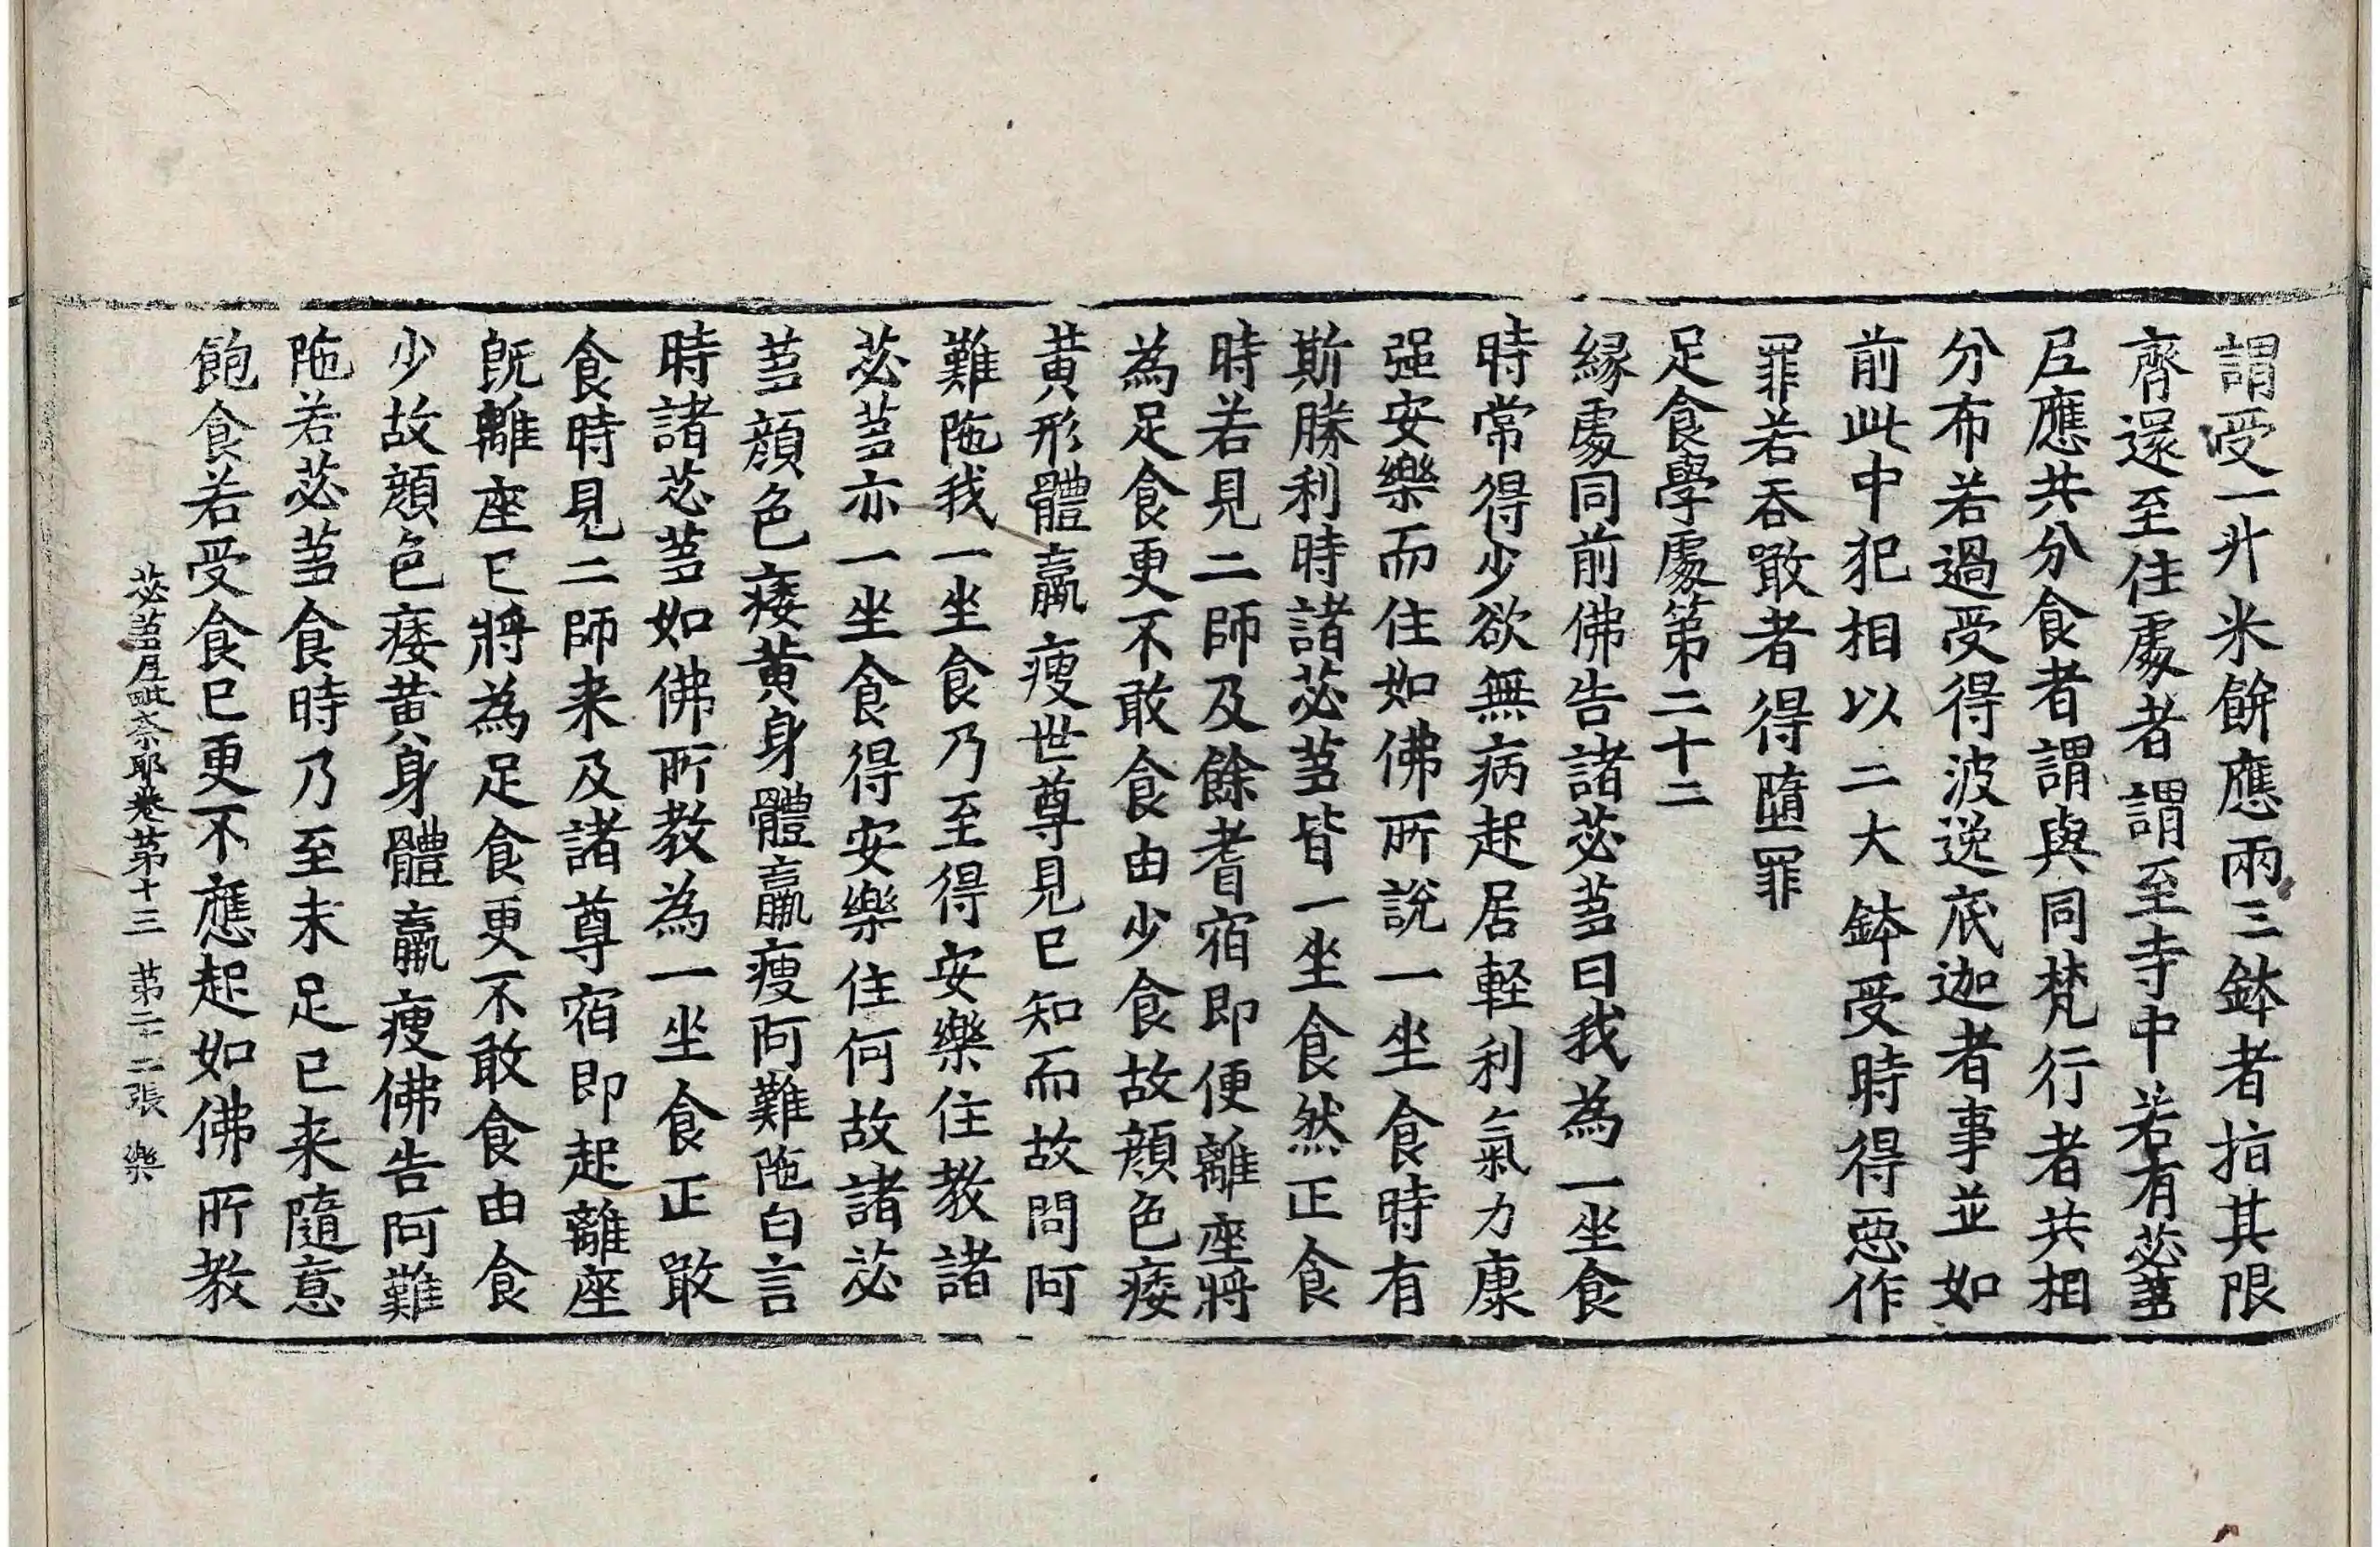 謂受一升米餅應兩三鉢者指其限
齊還至住處者謂至寺中若有苾芻
尼應共分食者謂與同梵行者共相
分布若過受得波逸底迦者事並如
前此中犯相以二大鉢受時得惡作
罪若吞噉者得墮罪
足食學處第二十二
緣處同前佛告諸苾芻曰我為一坐食
時常得少欲無病起居輕利氣力康
强安樂而住如佛所說一坐食時有
斯勝利時諸苾芻皆一坐食然正食
時若見二師及餘耆宿即便離座將
為足食更不敢食由少食故顏色痿
黃形體羸瘦世尊見已知而故問阿
難陁我一坐食乃至得安樂住教諸
苾芻亦一坐食得安樂住何故諸苾
芻顏色痿黃身體羸瘦阿難陁白言
時諸苾芻如佛所教為一坐食正噉
食時見二師来及諸尊宿即起離座
旣離座已將為足食更不敢食由食
少故顏色痿黃身體羸瘦佛告阿難
陁若苾芻食時乃至未足已来隨意
飽食若受食已更不應起如佛所教
苾芻尼毗奈耶卷第十三 第二十二張 樂